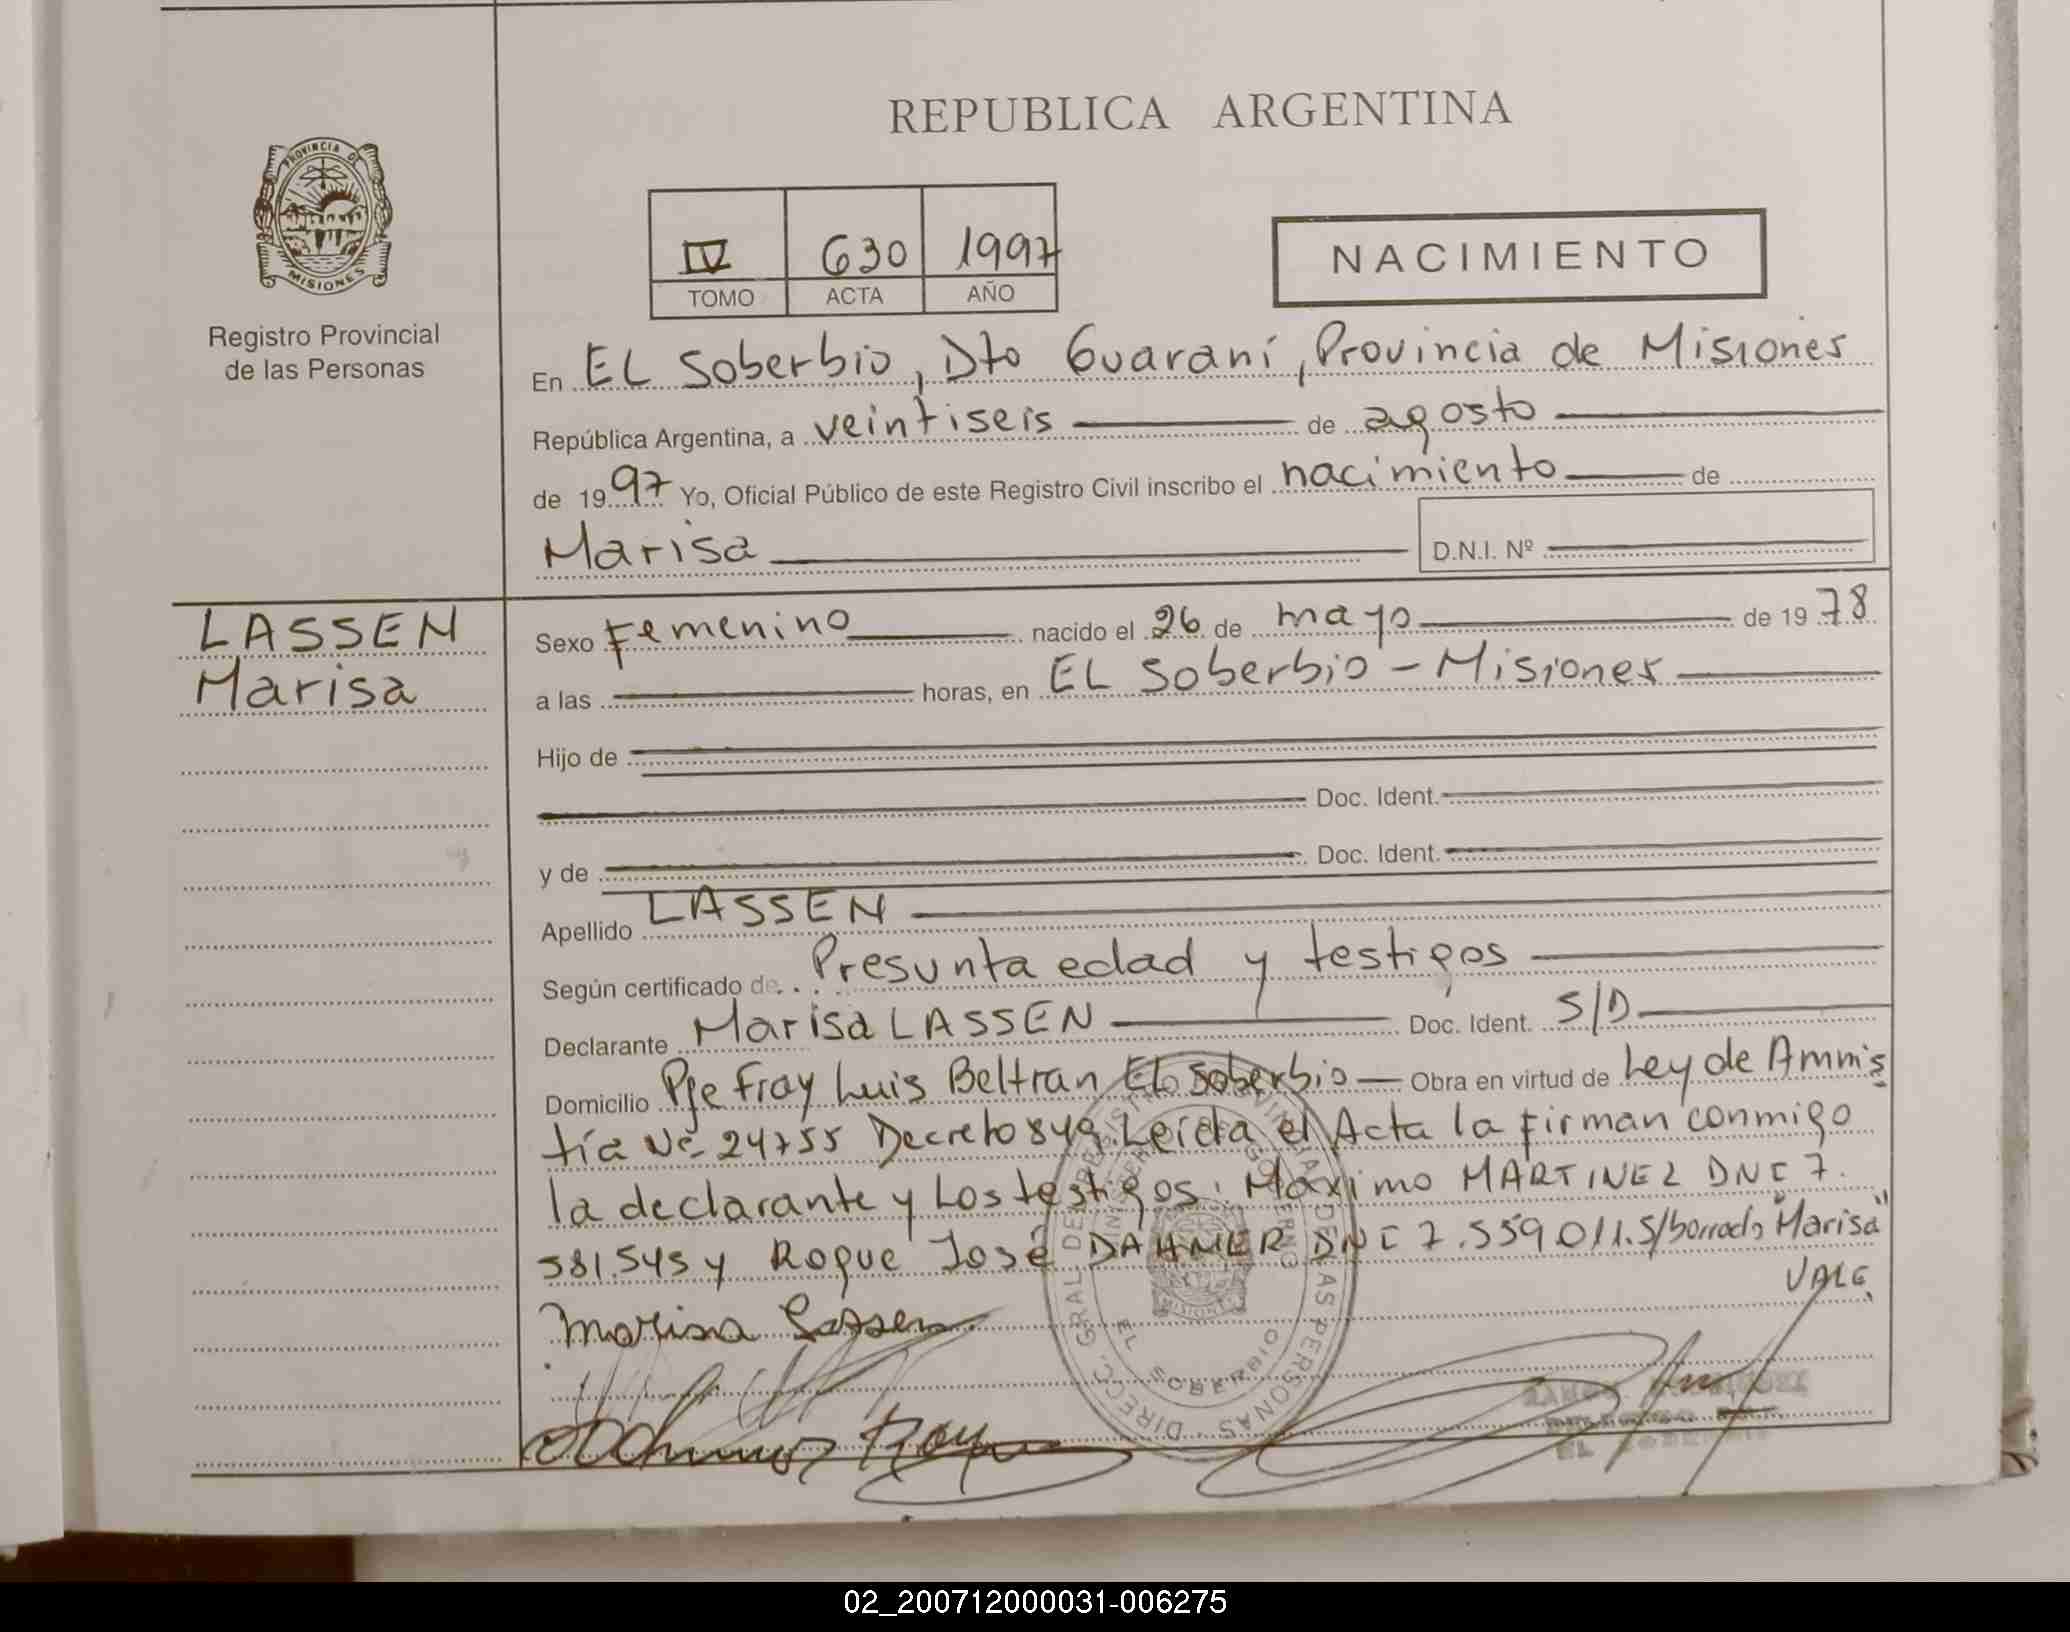 REPUBLICA ARGENTINA
PROVINCIA DE
MISIONES
Registro Provincial
de las Personas
IV 630 1997
TOMO ACTA AÑO
NACIMIENTO
En EL Soberbio, Dto Guaraní, Provincia de Misiones
República Argentina, a veintiseis de agosto
de 1997 Yo, Oficial Público de este Registro Civil inscribo el nacimiento de
Marisa D.N.I. Nº
LASSEN
Marisa
Sexo Femenino nacido el 26 de mayo de 1978
a las horas, en EL Soberbio - Misiones
Hijo de
Doc. Ident.
y de Doc. Ident.
Apellido LASSEN
Según certificado de Presunta edad y testigos
Declarante Marisa LASSEN Doc. Ident. S/D
Domicilio Pje Fray Luis Beltran EL Soberbio Obra en virtud de Ley de Amnis
tía Nº 24755 Decreto 849. Leída el Acta la firman conmigo
la declarante y Los testigos: Máximo MARTINEZ DNI 7.
581.545 y Roque José DAHMER DNI 7.559.011. S/borrado "Marisa"
VALE
Marisa Lassen
DIRECC. GRAL. DE REGISTRO PROVINCIAL DE LAS PERSONAS
EL SOBERBIO
MISIONES
02_200712000031-006275